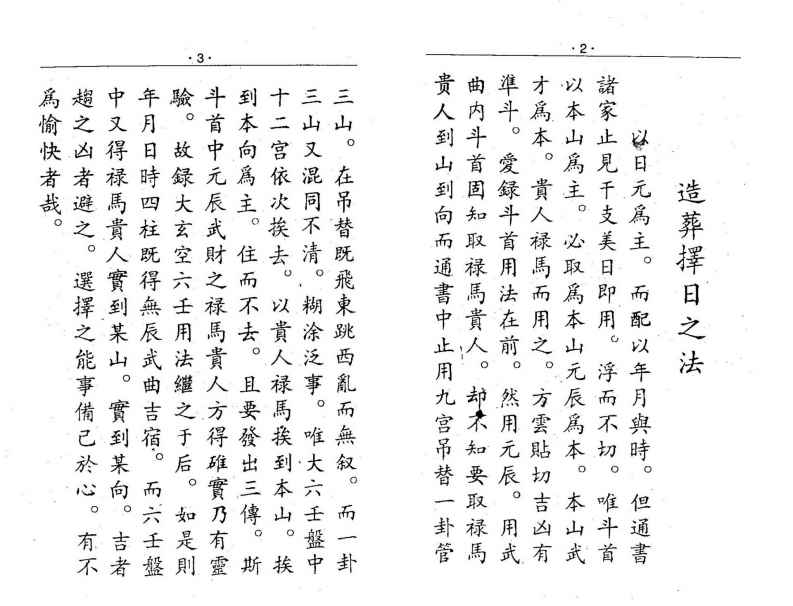 ·2·
造葬擇日之法
以日元爲主。而配以年月與時。但通書
諸家止見干支美日即用。浮而不切。唯斗首
以本山爲主。必取爲本山元辰爲本。本山武
才爲本。貴人禄馬而用之。方雲貼切吉凶有
準斗。愛録斗首用法在前。然用元辰。用武
曲内斗首固知取禄馬貴人。却不知要取禄馬
貴人到山到向而通書中止用九宫吊替一卦管
·3·
三山。在吊替既飛東跳西亂而無叙。而一卦
三山又混同不清。糊涂泛事。唯大六壬盤中
十二宫依次挨去。以貴人禄馬挨到本山。挨
到本向爲主。住而不去。且要發出三傳。斯
斗首中元辰武財之禄馬貴人方得碓實乃有靈
驗。故録大玄空六壬用法繼之于后。如是則
年月日時四柱既得無辰武曲吉宿。而六壬盤
中又得禄馬貴人實到某山。實到某向。吉者
趨之凶者避之。選擇之能事備已於心。有不
爲愉快者哉。